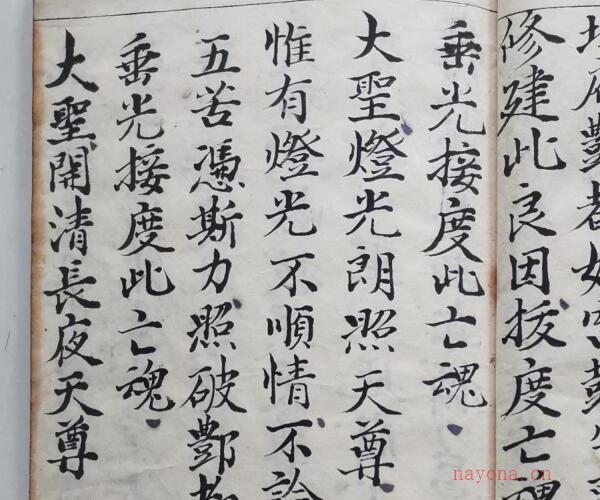 酆都
修建此良因拔度亡魂
垂光接度此亡魂
大聖燈光朗照天尊
惟有燈光不順情不論
五苦憑斯力照破酆都
垂光接度此亡魂
大聖開清長夜天尊
nayona.cn